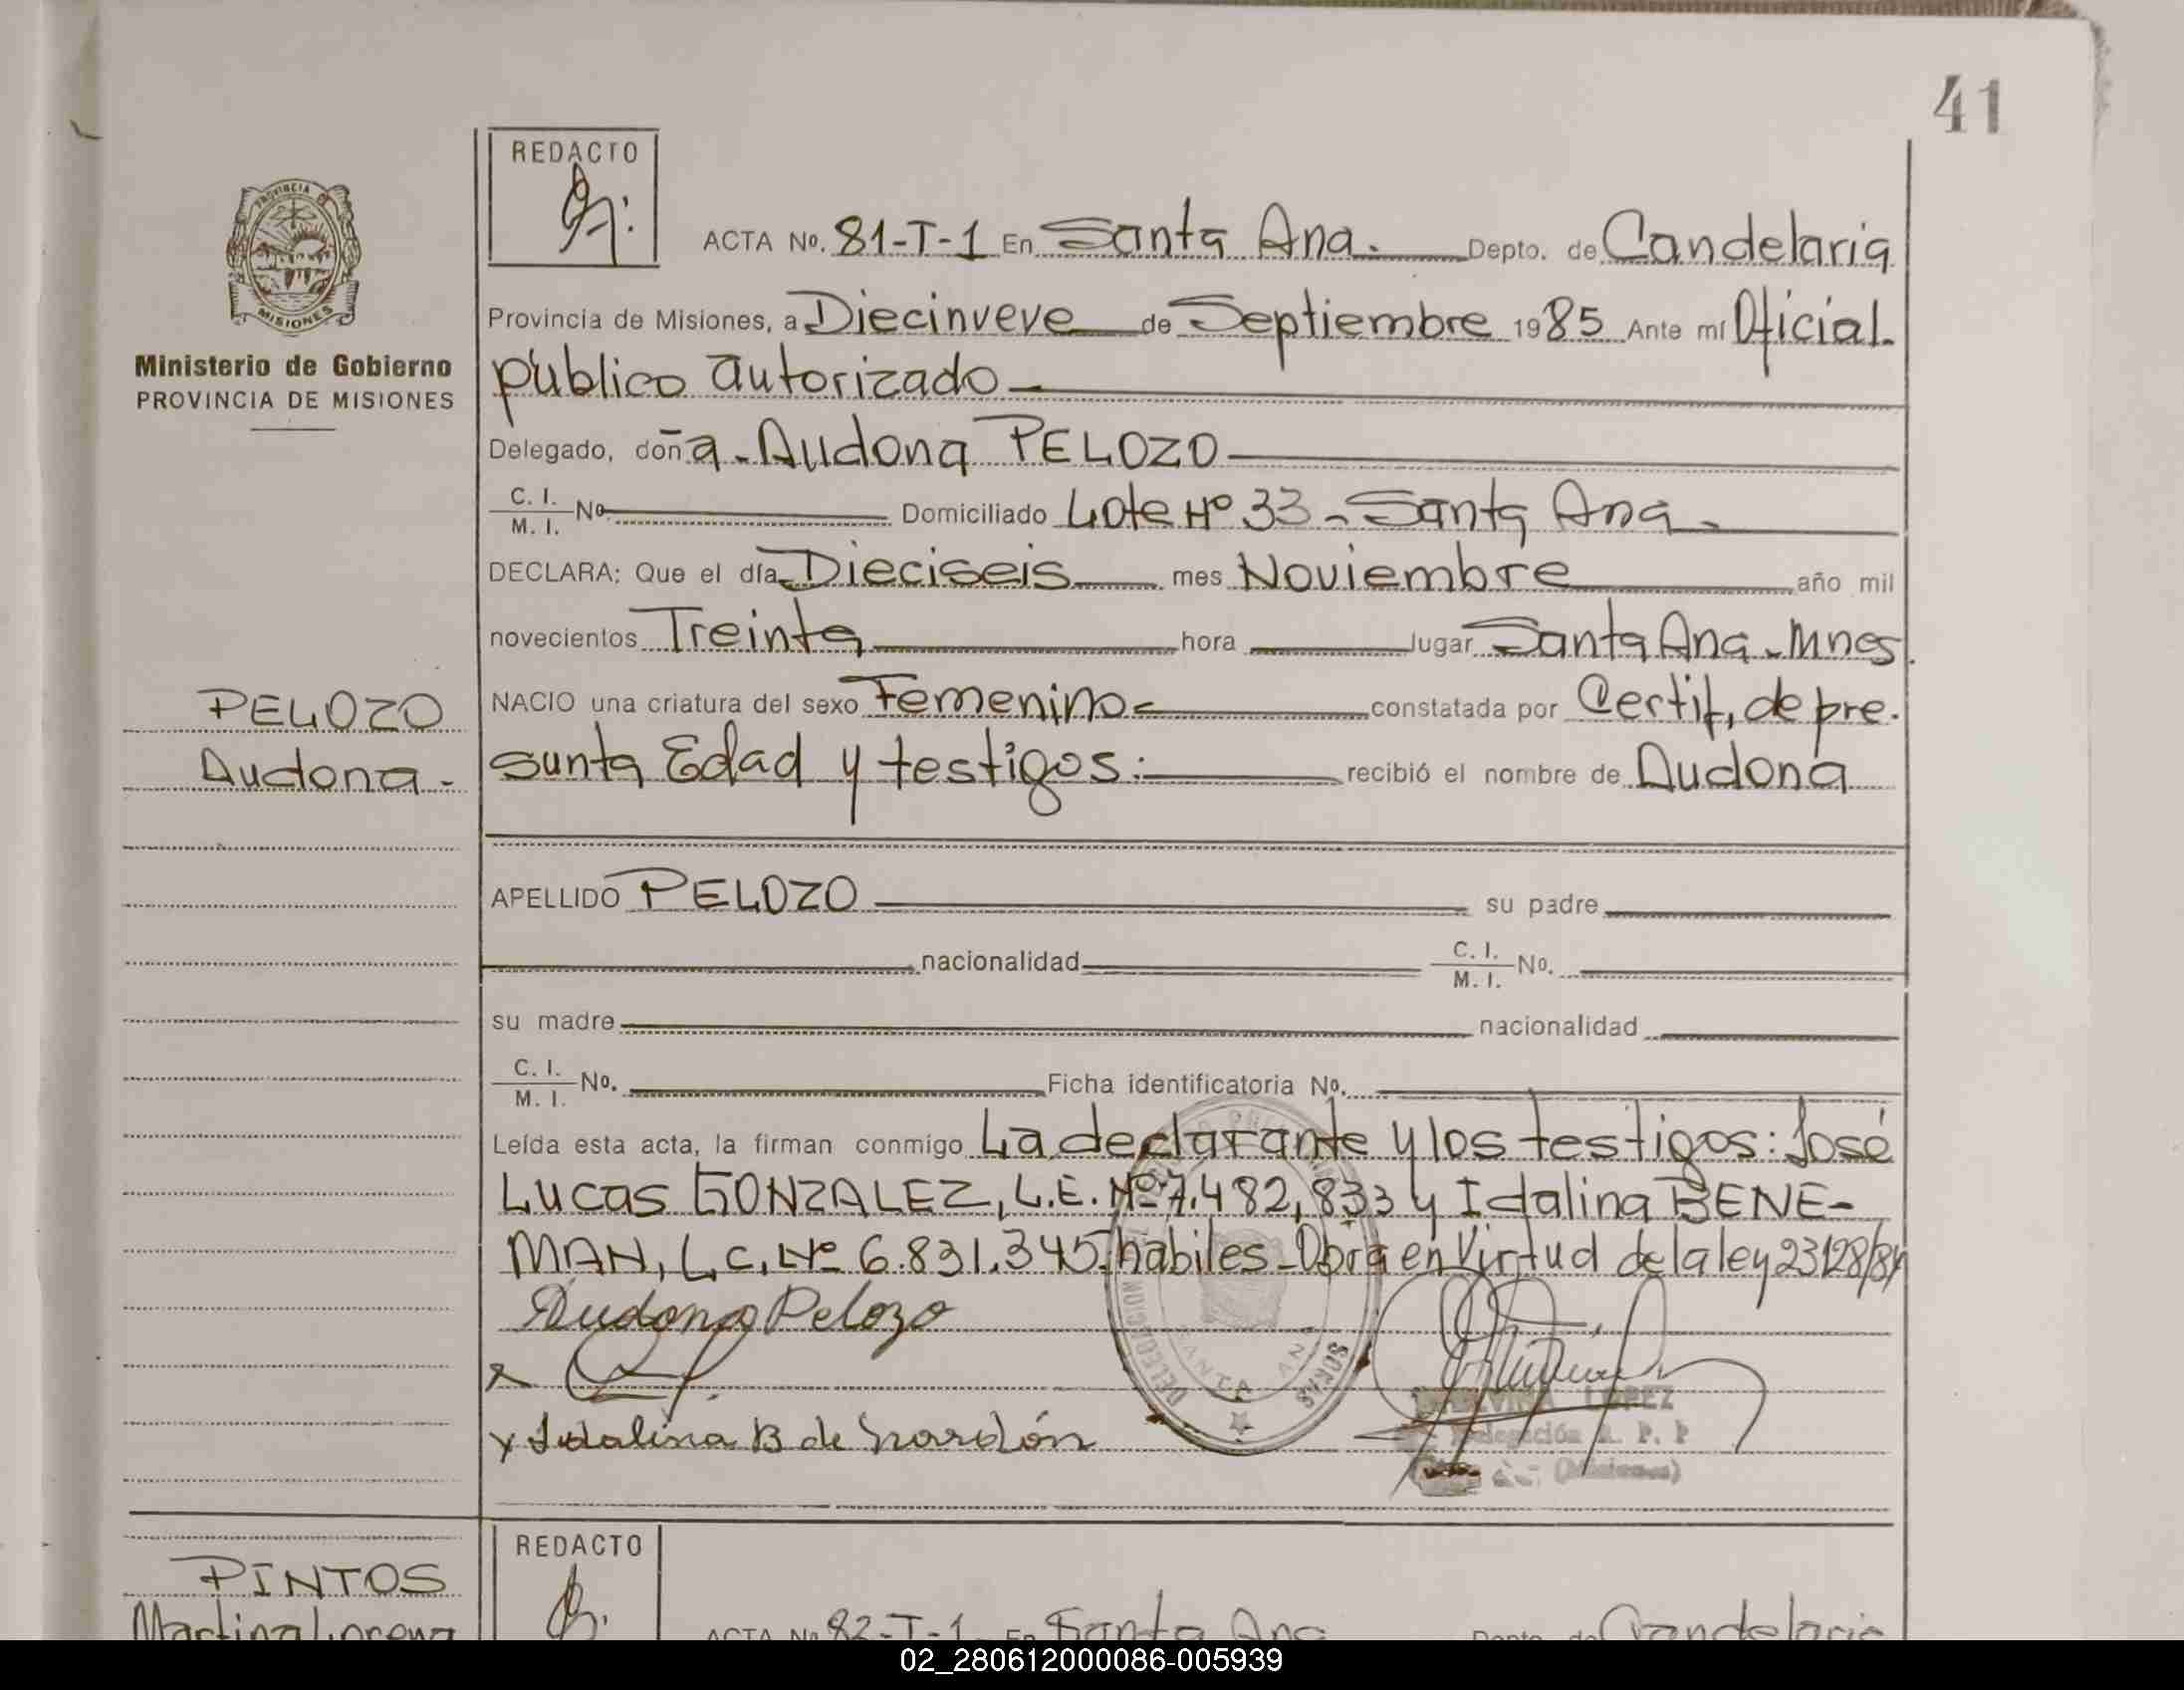 41
REDACTO
ACTA No. 81-T-1 En Santa Ana.- Depto. de Candelaria
Provincia de Misiones, a Diecinueve de Septiembre 1985 Ante mí Oficial
público autorizado
Delegado, doña Audona PELOZO
C. I.
M. I. No. Domiciliado Lote Nº 33 - Santa Ana -
DECLARA: Que el día Dieciseis mes Noviembre año mil
novecientos Treinta hora lugar Santa Ana - Mnes.
NACIO una criatura del sexo Femenino constatada por Certif, de pre.
sunta Edad y testigos. recibió el nombre de Audona
APELLIDO PELOZO su padre
nacionalidad C. I.
M. I. No.
su madre nacionalidad
C. I.
M. I. No. Ficha identificatoria No.
Leída esta acta, la firman conmigo La declarante y los testigos: José
Lucas GONZALEZ, L.E. Nº 7.482,833 y Idalina BENE-
MAN, L.C. Nº 6.831.345, habiles - Obra en Virtud de la ley 23128/84
Audona Pelozo
x
x Idalina B de
DELEGACION
SANTA ANA
LOPEZ
Delegación R. P. P
(Misiones)
PROVINCIA DE
MISIONES
Ministerio de Gobierno
PROVINCIA DE MISIONES
PELOZO
Audona -
REDACTO
PINTOS
Martina Lorena
ACTA No 82-T-1 En Santa Ana Depto. de Candelaria
02_280612000086-005939